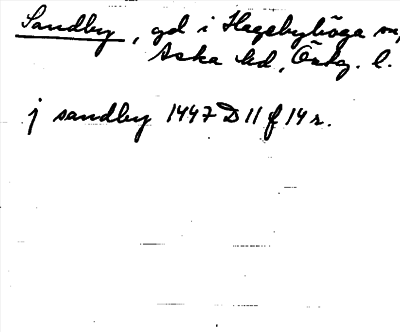 Sandby, gd i Hagebyhöga sn,
Aska hd, Östg. l.
j sandby 1447 D 11 f 14 r.